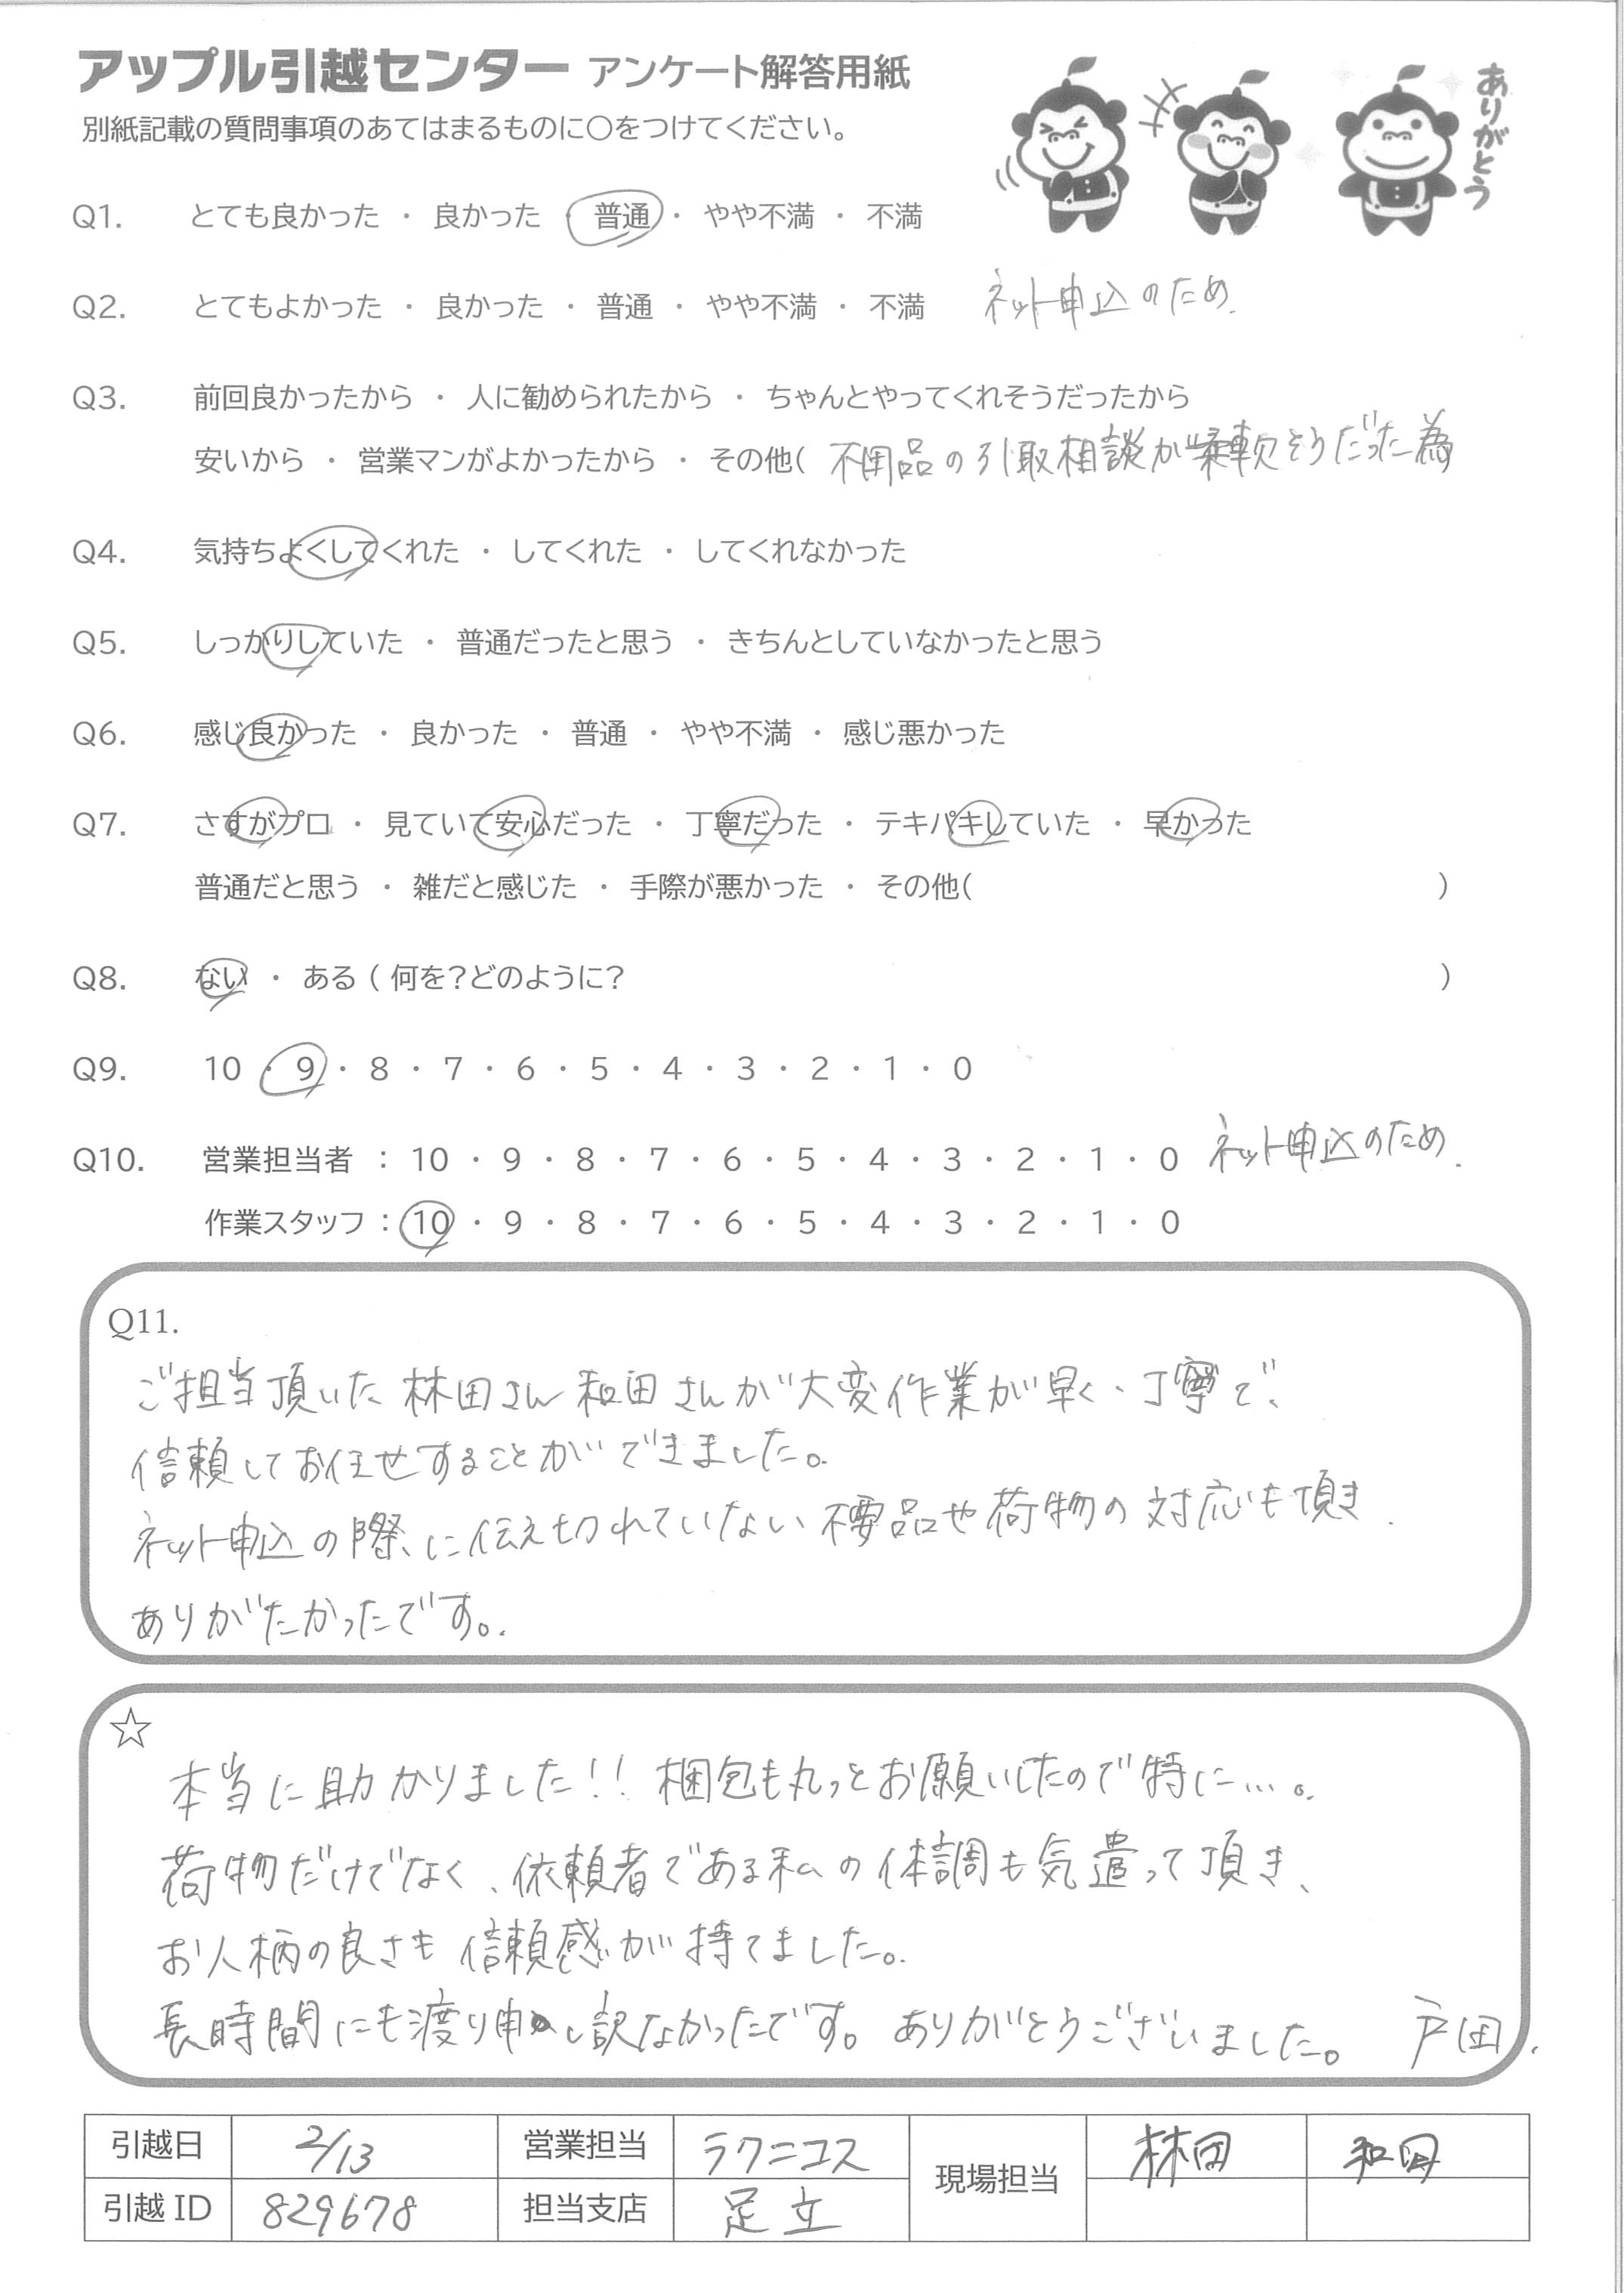 アップル引越センター アンケート解答用紙
別紙記載の質問事項のあてはまるものに○をつけてください。
ありがとう
Q1. とても良かった ・ 良かった ・ 普通 ・ やや不満 ・ 不満
Q2. とてもよかった ・ 良かった ・ 普通 ・ やや不満 ・ 不満 ネット申込のため.
Q3. 前回良かったから ・ 人に勧められたから ・ ちゃんとやってくれそうだったから
安いから ・ 営業マンがよかったから ・ その他( 不用品の引取相談が柔軟そうだった為
Q4. 気持ちよくしてくれた ・ してくれた ・ してくれなかった
Q5. しっかりしていた ・ 普通だったと思う ・ きちんとしていなかったと思う
Q6. 感じ良かった ・ 良かった ・ 普通 ・ やや不満 ・ 感じ悪かった
Q7. さすがプロ ・ 見ていて安心だった ・ 丁寧だった ・ テキパキしていた ・ 早かった
普通だと思う ・ 雑だと感じた ・ 手際が悪かった ・ その他( )
Q8. ない ・ ある ( 何を?どのように? )
Q9. 10 ・ 9 ・ 8 ・ 7 ・ 6 ・ 5 ・ 4 ・ 3 ・ 2 ・ 1 ・ 0
Q10. 営業担当者 : 10 ・ 9 ・ 8 ・ 7 ・ 6 ・ 5 ・ 4 ・ 3 ・ 2 ・ 1 ・ 0 ネット申込のため.
作業スタッフ : 10 ・ 9 ・ 8 ・ 7 ・ 6 ・ 5 ・ 4 ・ 3 ・ 2 ・ 1 ・ 0
Q11.
ご担当頂いた 林田さん 和田さんが大変作業が早く、丁寧で、
信頼してお任せすることができました。
ネット申込の際に伝え切れていない不要品や荷物の対応も頂き、
ありがたかったです。
☆
本当に助かりました!! 梱包も丸っとお願いしたので特に…。
荷物だけでなく、依頼者である私の体調も気遣って頂き、
お人柄の良さも信頼感が持てました。
長時間にも渡り申し訳なかったです。ありがとうございました。 戸田.
引越日 2/13 営業担当 ラクニコス 現場担当 林田 和田
引越 ID 829678 担当支店 足立